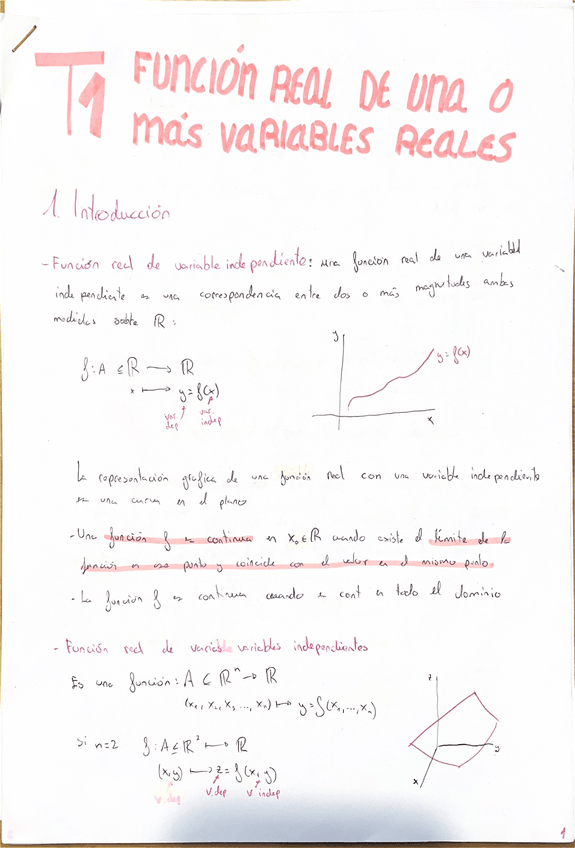 T1 FUNCIÓN REAL DE UNA O
MÁS VARIABLES REALES
1. Introducción
- Función real de variable independiente: una función real de una variabel
independiente es una correspondencia entre dos o más magnitudes ambas
medidas sobre ℝ:
f: A ⊆ ℝ → ℝ
x ↦ y = f(x)
var. dep
var. indep
y
y = f(x)
x
La representación grafica de una función real con una variable independiente
es una curva en el plano
- Una función f es continua en x₀ ∈ ℝ cuando existe el límite de la
función en ese punto y coincide con el valor en el mismo punto.
- La función f es continua cuando es cont en todo el dominio
- Función real de varias variables independientes
Es una función: A ⊂ ℝⁿ → ℝ
(x₁, x₂, x₃ ..., xₙ) ↦ y = f(x₁, ..., xₙ)
si n=2 f: A ⊆ ℝ² ↦ ℝ
(x,y) ↦ z = f(x, y)
v. dep
v. dep
v indep
z
y
x
1